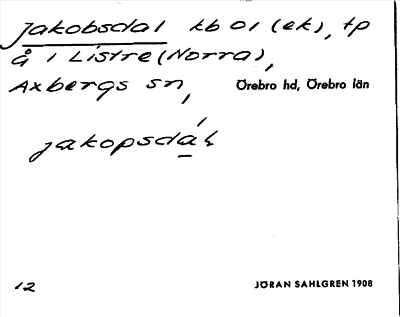 Jakobsdal kb 01 (ek), tp
å i Listre (Norra),
Axbergs sn, Örebro hd, Örebro län
jakopsdál
12 JÖRAN SAHLGREN 1908